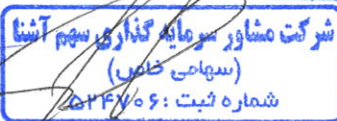 شرکت مشاور سرمایه گذاری سهم آشنا
(سهامی خاص)
شماره ثبت :۵۲۴۷۰۶